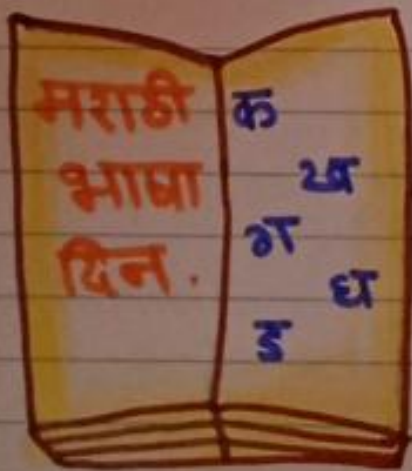 मराठी
भाषा
दिन.
क
ख
ग
घ
ड